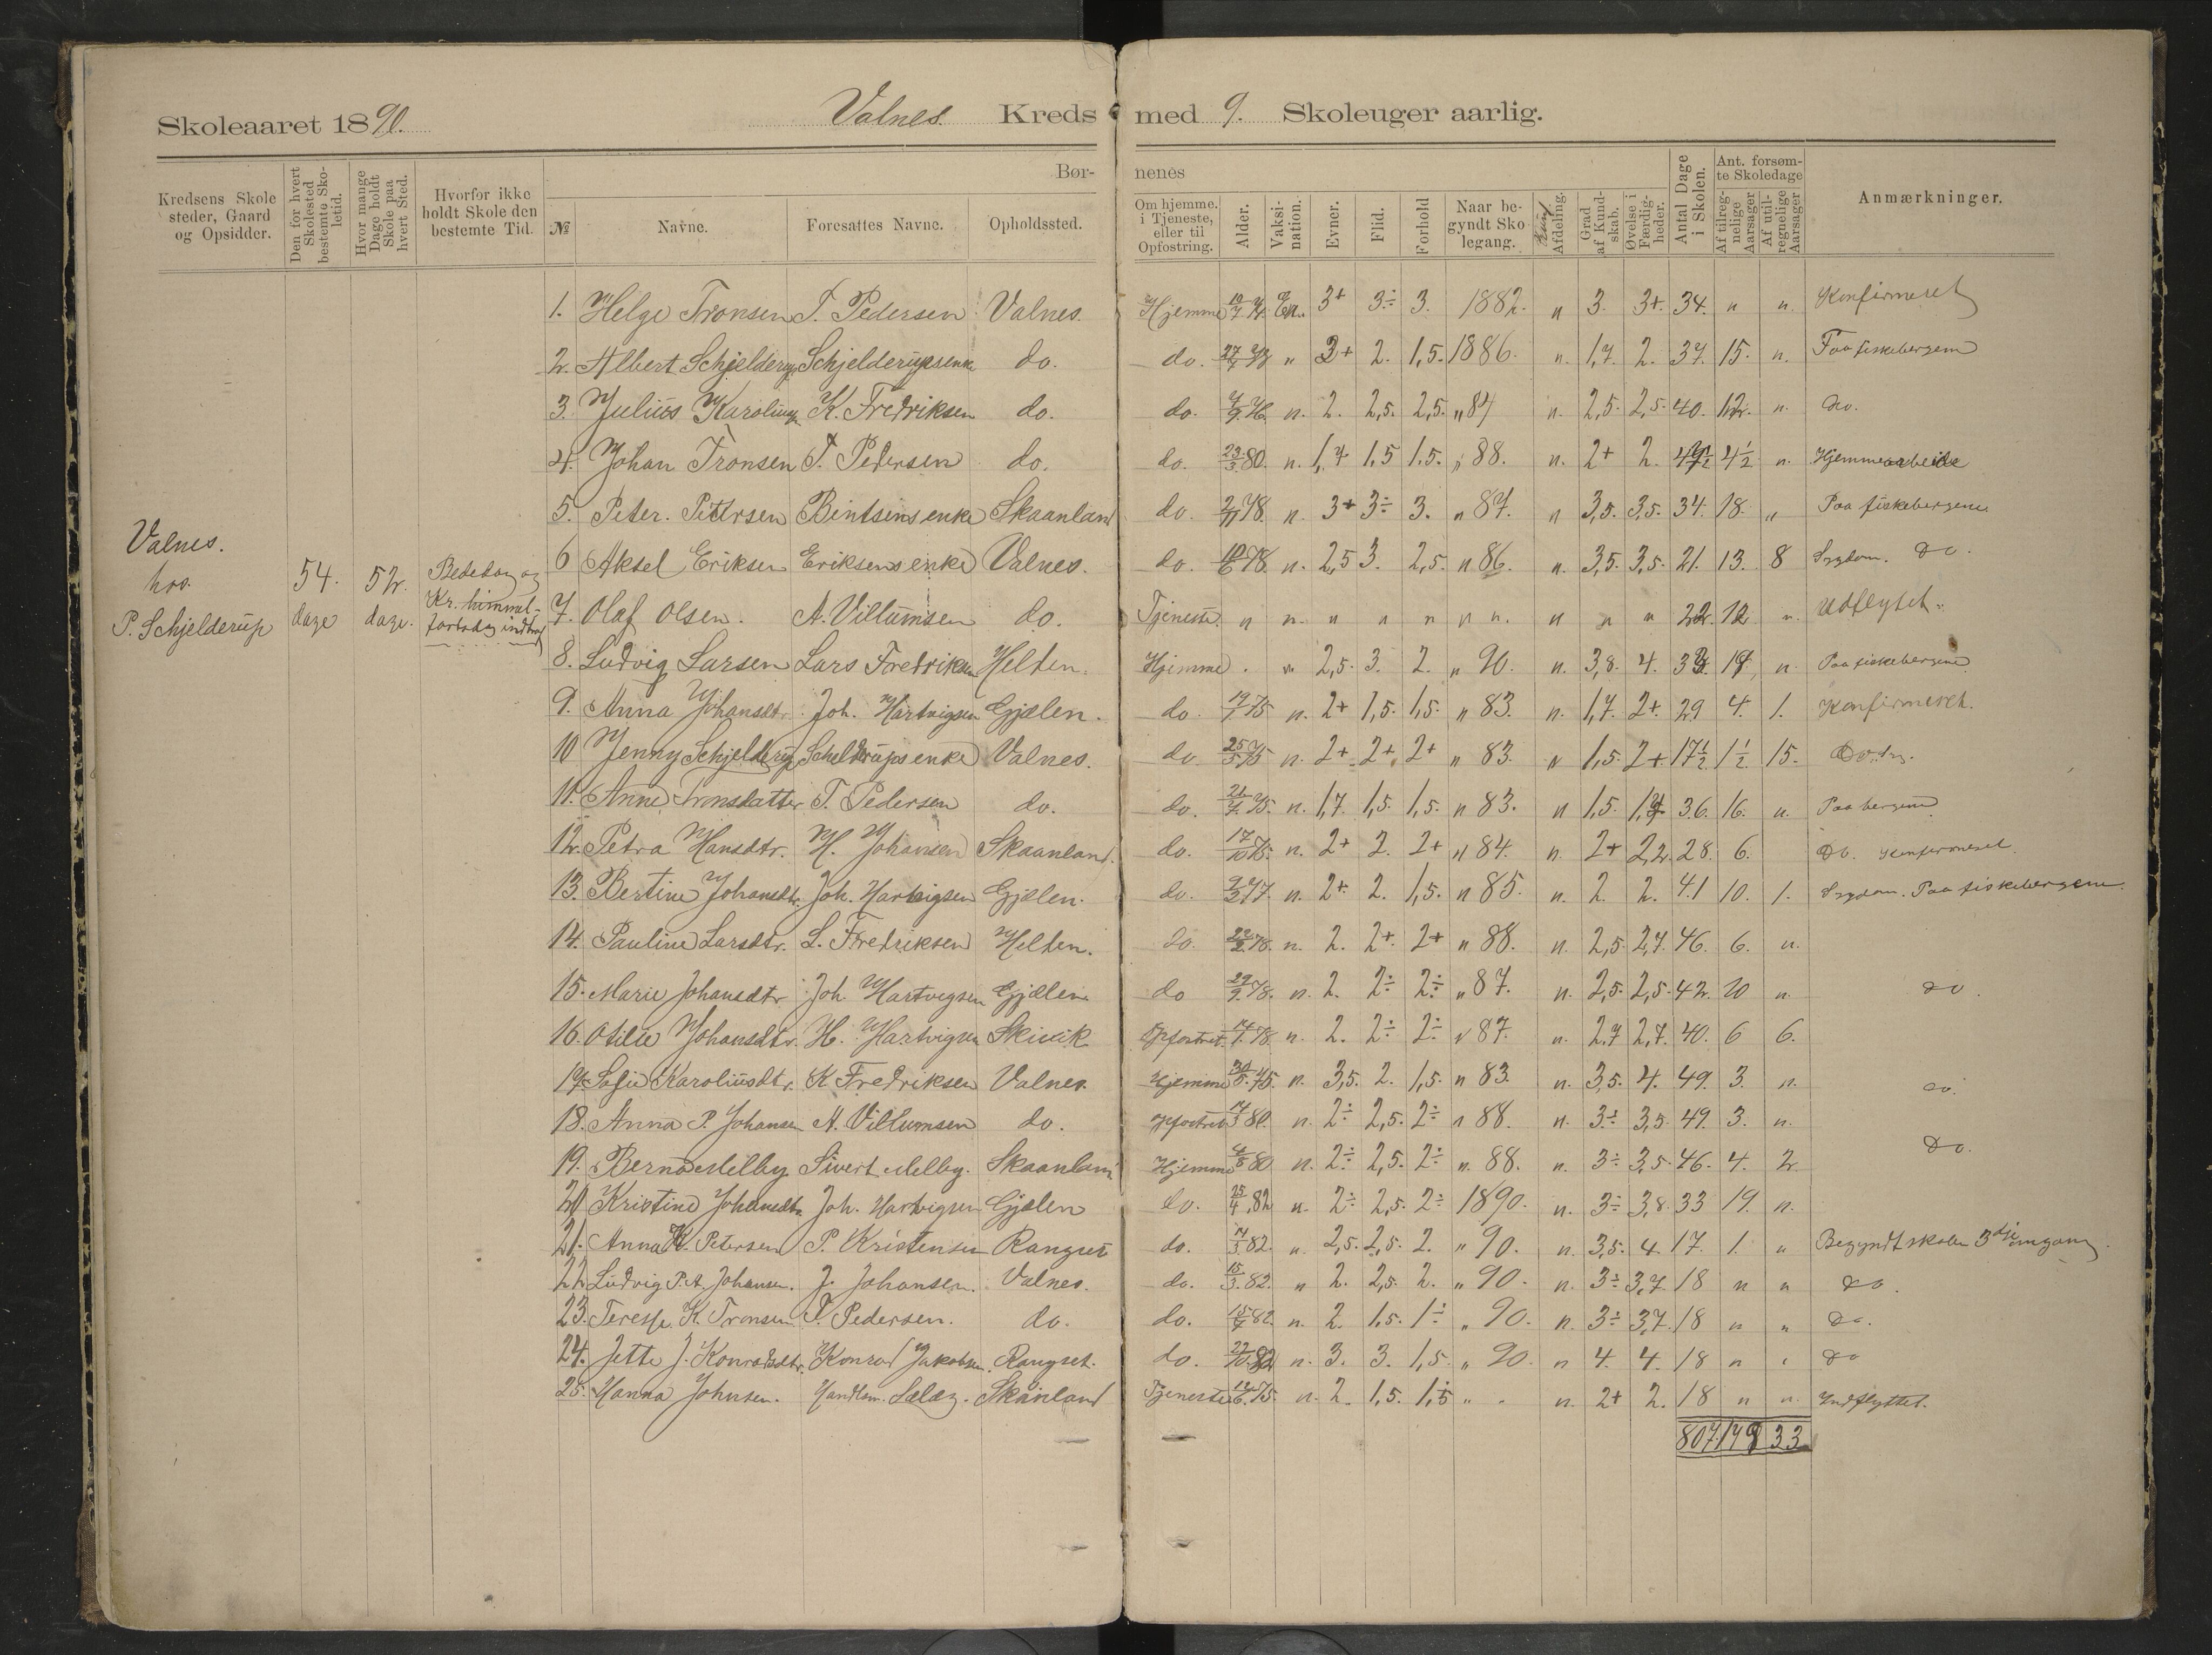 Skoleaaret 1890. Valnes. Kreds med 9. Skoleuger aarlig.
Kredsens Skolesteder, Gaard og Opsidder. Den for hvert Skolested bestemte Skoletid. Hvor mange Dage holdt Skole paa hvert Sted. Hvorfor ikke holdt Skole den bestemte Tid. Børnenes
№ Navne. Foresattes Navne. Opholdssted. Om hjemme, i Tjeneste, eller til Opfostring. Alder. Vaksination. Evner. Flid. Forhold Naar begyndt Skolegang. Afdeling. Grad af Kundskab. Øvelse i Færdigheder. Antal Dage i Skolen. Ant. forsømte Skoledage Af tilregnelige Aarsager Af utilregnelige Aarsager Anmærkninger.
Valnes.
hos
P. Schjelderup
54. dage
52. dage.
Bededag og
Kr. himmel-
fartsdag indtraf
1. Helge Tronsen T. Pedersen Valnes. Hjemme 3+ 3÷ 3. 1882. " 3. 3+. 34. " " Konfirmeret
2. Albert Schjelderup Schjelderupsenke do. do. " 3+ 2. 1,5. 1886. " 1,7. 2. 37. 15. " Paa fiskebergene
3. Julius Karoliusen K. Fredriksen do. do. " 2. 2,5. 2,5. " 87 " 2,5. 2,5. 40. 12. " do.
4. Johan Tronsen T. Pedersen do. do. 23/3 80. " 1,7 1,5 1,5. " 88. " 2+ 2. 4½ " Hjemmearbeide
5. Peter Petersen Bintsens enke Skaanland do. 78. " 3+ 3÷ 3. " 87. " 3,5. 3,5. 34. 18. " Paa fiskebergene
6 Aksel Eriksen Eriksens enke Valnes. do. 78. " 2,5 3. 2,5. " 86. " 3,5. 3,5. 21. 13. 8 Sygdom. do.
7. Olaf Olsen. A. Villumsen do. Tjeneste. " " " " " " " " " " 22. 12 " Udflyttet.
8. Ludvig Larsen Lars Fredriksen Helten. Hjemme . " 2,5. 3. 2. " 90. " 3,8. 4. 17 " Paa fiskebergene
9. Anna Johansdtr. Joh. Hartvigsen Gjælen. do. 75 " 2+ 1,5. 1,5. " 83. " 1,7. 2+. 29 4. 1. Konfirmeret.
10 Jenny Schjelderup Schelderups enke Valnes. do 25/5 75 " 2+ 2+ 2+ " 83. " 1,5. 2+. 17½ 1½ 15. do.
11. Anne Tronsdatter T. Pedersen do. do. 75. " 1,7. 1,5. 1,5. " 83. " 1,5. 36. 16. " Paa bergene
12. Petra Hansdtr. H. Johansen Skaanland. do. 17/10 75. " 2+ 2. 2+ " 84. " 2+ 2,2. 28. 6. do. Konfirmeret.
13. Bertine Johansdtr. Joh. Hartvigsen Gjælen. do. 77. " 2+. 2. 1,5. " 85. " 2. 2. 41 10. 1. Sygdom. Paa fiskebergene.
14. Pauline Larsdtr. L. Fredriksen Helten. do. 22/2 78. " 2. 2+. 2+ " 88. " 2,5. 2,7. 46. 6. "
15. Marie Johansdtr. Joh. Hartvigsen Gjælen do 29/9 78. " 2. 2÷ 2÷ " 87. " 2,5. 2,5. 42. 10 " do.
16. Otilie Johansdtr. H. Hartvigsen Skivik Opfostret. 78. " 2. 2÷ 2÷ " 87. " 2,7 2,7. 40. 6 6.
17. Sofie Karoliusdtr. K. Fredriksen Valnes. Hjemme 30/5 75. " 3,5. 2. 1,5. " 83. " 3,5. 4. 49. 3. " do.
18. Anna P. Johansen A. Villumsen do. Opfostret 80. " 2÷ 2,5. 2÷ " 88. " 3÷ 3,5. 49. 3. "
19. Berna Melby Sivert Melby. Skaanland Hjemme 80. " 2÷ 2,5. 2÷ " 88. " 3÷ 3,5. 46. 4. 2. do.
20 Kristine Johansdtr. Joh. Hartvigsen Gjælen do. 25/4 82 " 2÷ 2,5. 2÷ 1890. " 3÷ 3,8. 33 19. "
21. Anna K. Petersen P. Kristensen Rangset do. 82. " 2,5. 2,5. 2. " 90. " 3,5. 4. 17. 1. " Begyndt skolen 3die omgang.
22 Ludvig P. A. Johansen. J. Johansen. Valnes. do. 15/3 82. " 2. 2,5. 2. " 90. " 3÷ 3,7. 18 " " do.
23. Teresse K. Tronsen T. Pedersen. do. do. 82. " 2. 1,5. 1÷ " 90. " 3÷ 3,7. 18 " " do.
24. Jette J. Konradsdtr. Konrad Jakobsen. Rangset. do. 22/10 82 " 3. 3. 1,5. " 90. " 4. 4. 18 " " do
25. Hanna Johnsen. Handlsm. Skånland Tjeneste 75. " 2. 1,5. 1,5 " " " 2+ 2. 18 " " Indflyttet.
807 33